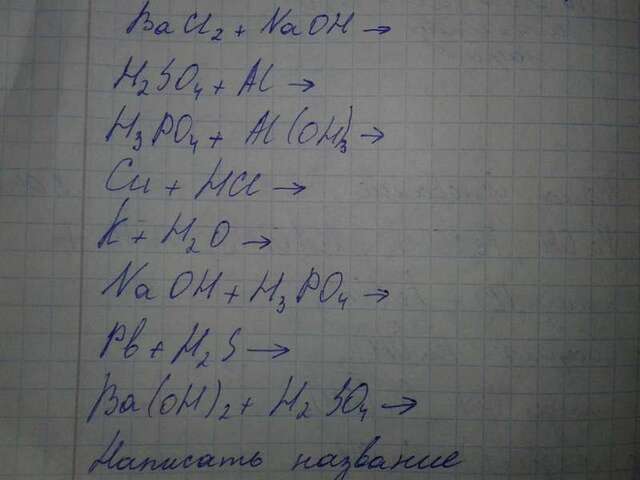 BaCl₂ + NaOH →
H₂SO₄ + Al →
H₃PO₄ + Al(OH)₃ →
Cu + HCl →
K + H₂O →
NaOH + H₃PO₄ →
Pb + H₂S →
Ba(OH)₂ + H₂SO₄ →
Написать название